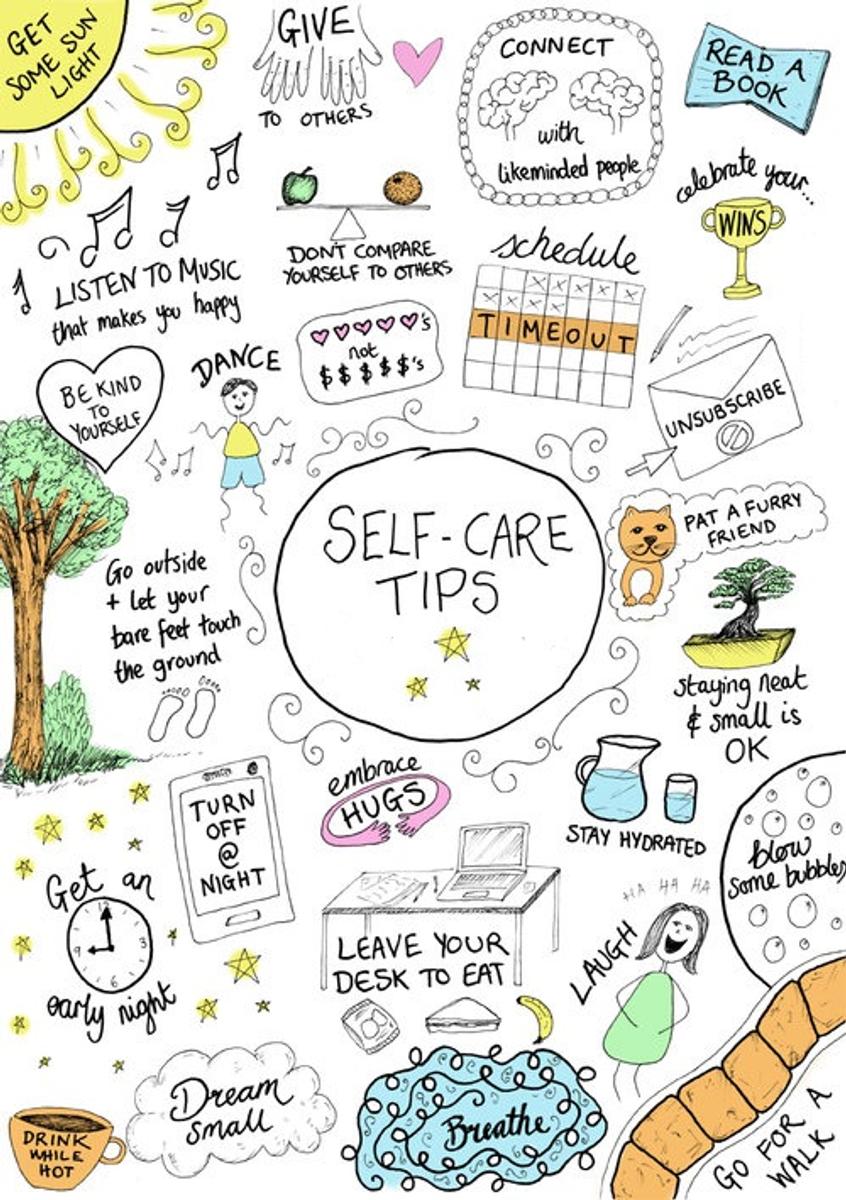 GET
SOME SUN
LIGHT
GIVE
TO OTHERS
CONNECT
with
likeminded people
READ A
BOOK
celebrate your...
WINS
LISTEN TO MUSIC
that makes you happy
DON'T COMPARE
YOURSELF TO OTHERS
schedule
TIMEOUT
's
not
$ $ $ $ $'s
BE KIND
TO
YOURSELF
DANCE
UNSUBSCRIBE
SELF-CARE
TIPS
PAT A FURRY
FRIEND
Go outside
+ let your
bare feet touch
the ground
staying neat
& small is
OK
TURN
OFF
@
NIGHT
embrace
HUGS
STAY HYDRATED
blow
some bubbles
Get an
12
3
6
9
early night
LEAVE YOUR
DESK TO EAT
HA HA HA
LAUGH
Dream
small
Breathe
DRINK
WHILE
HOT
GO FOR A
WALK